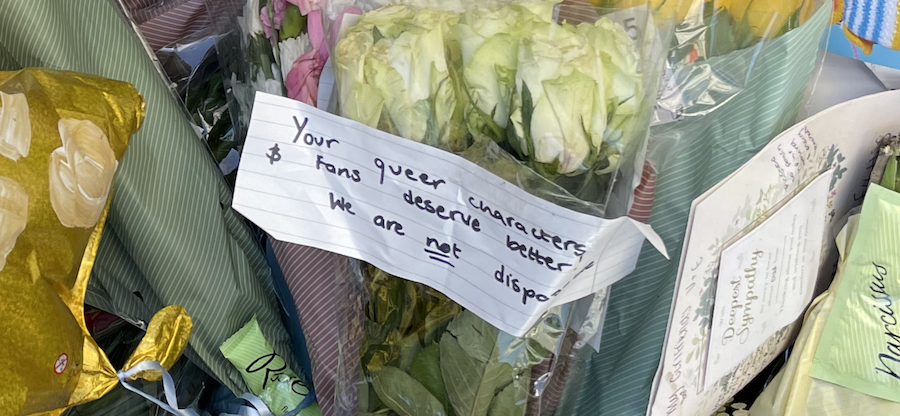 Your queer characters
& Fans deserve better
We are not dispo
Deepest
Sympathy
Narcissus